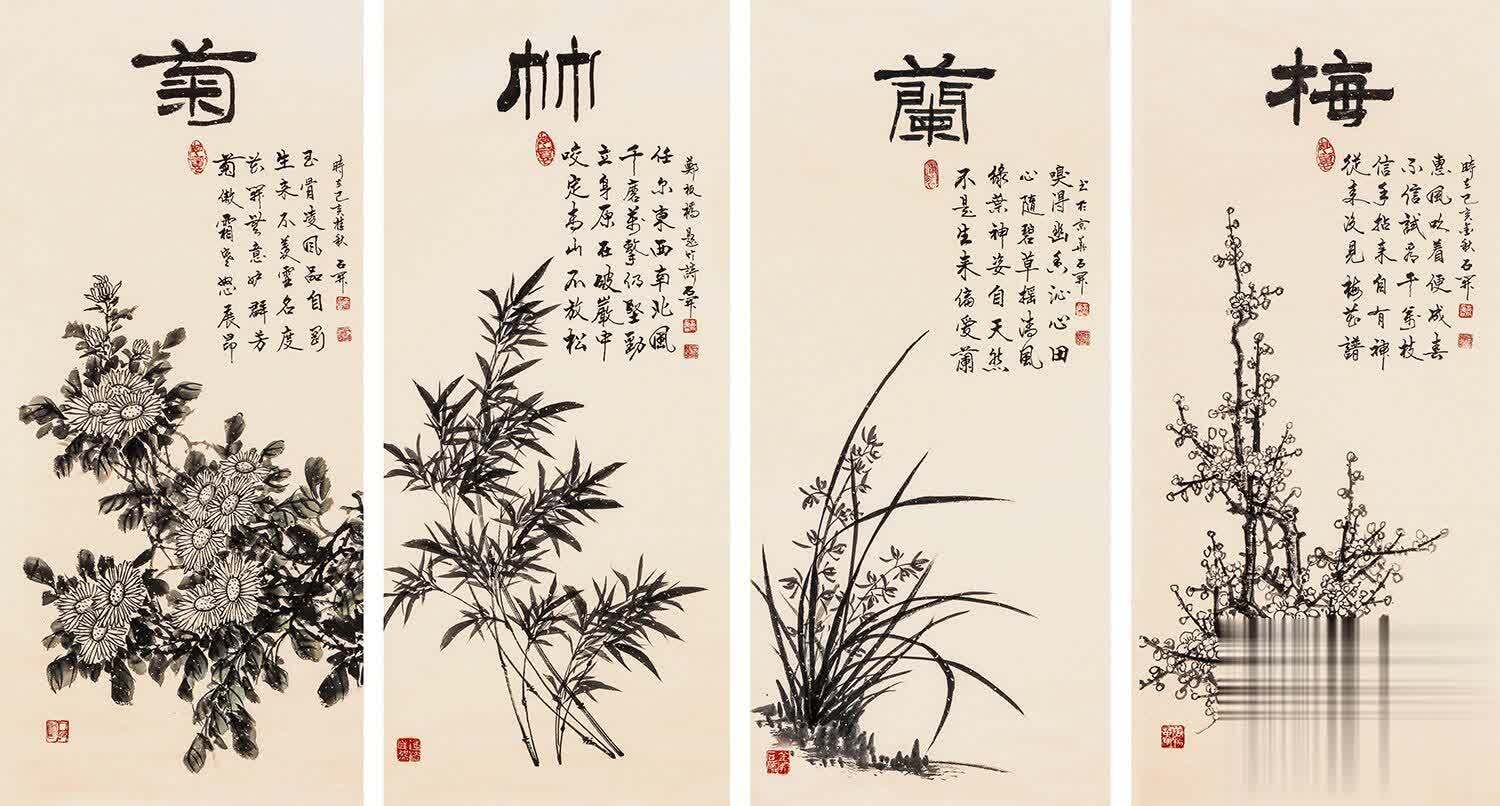 梅
從来没見梅花譜
信手拈来自有神
不信試看千萬枝
惠風吹着便成春
時在己亥金秋 石開
蘭
不是生来偏愛蘭
綠葉神姿自天然
心隨碧草摇清風
嗅得幽香沁心田
书於京華石開
竹
咬定高山不放松
立身原在破巖中
千磨萬擊仍堅勁
任尔東西南北風
鄭板橋題竹詩 石開
菊
菊傲霜寒怒展昂
花開無意妒群芳
生来不羡虚名度
玉骨凌風品自
時在己亥桂秋 石開